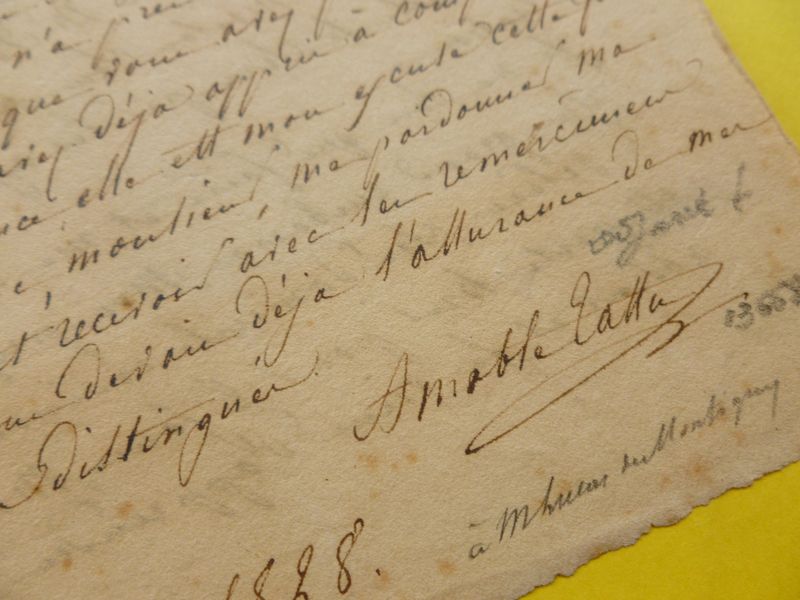 n'a
que vous avez
déjà appris à
elle est mon excuse cette
monsieur, me pardonner ma
recevoir avec les remerciemens
devois déjà l'assurance de mes
distinguées
Amable Tastu
à M Lucas de Montigny
1828.